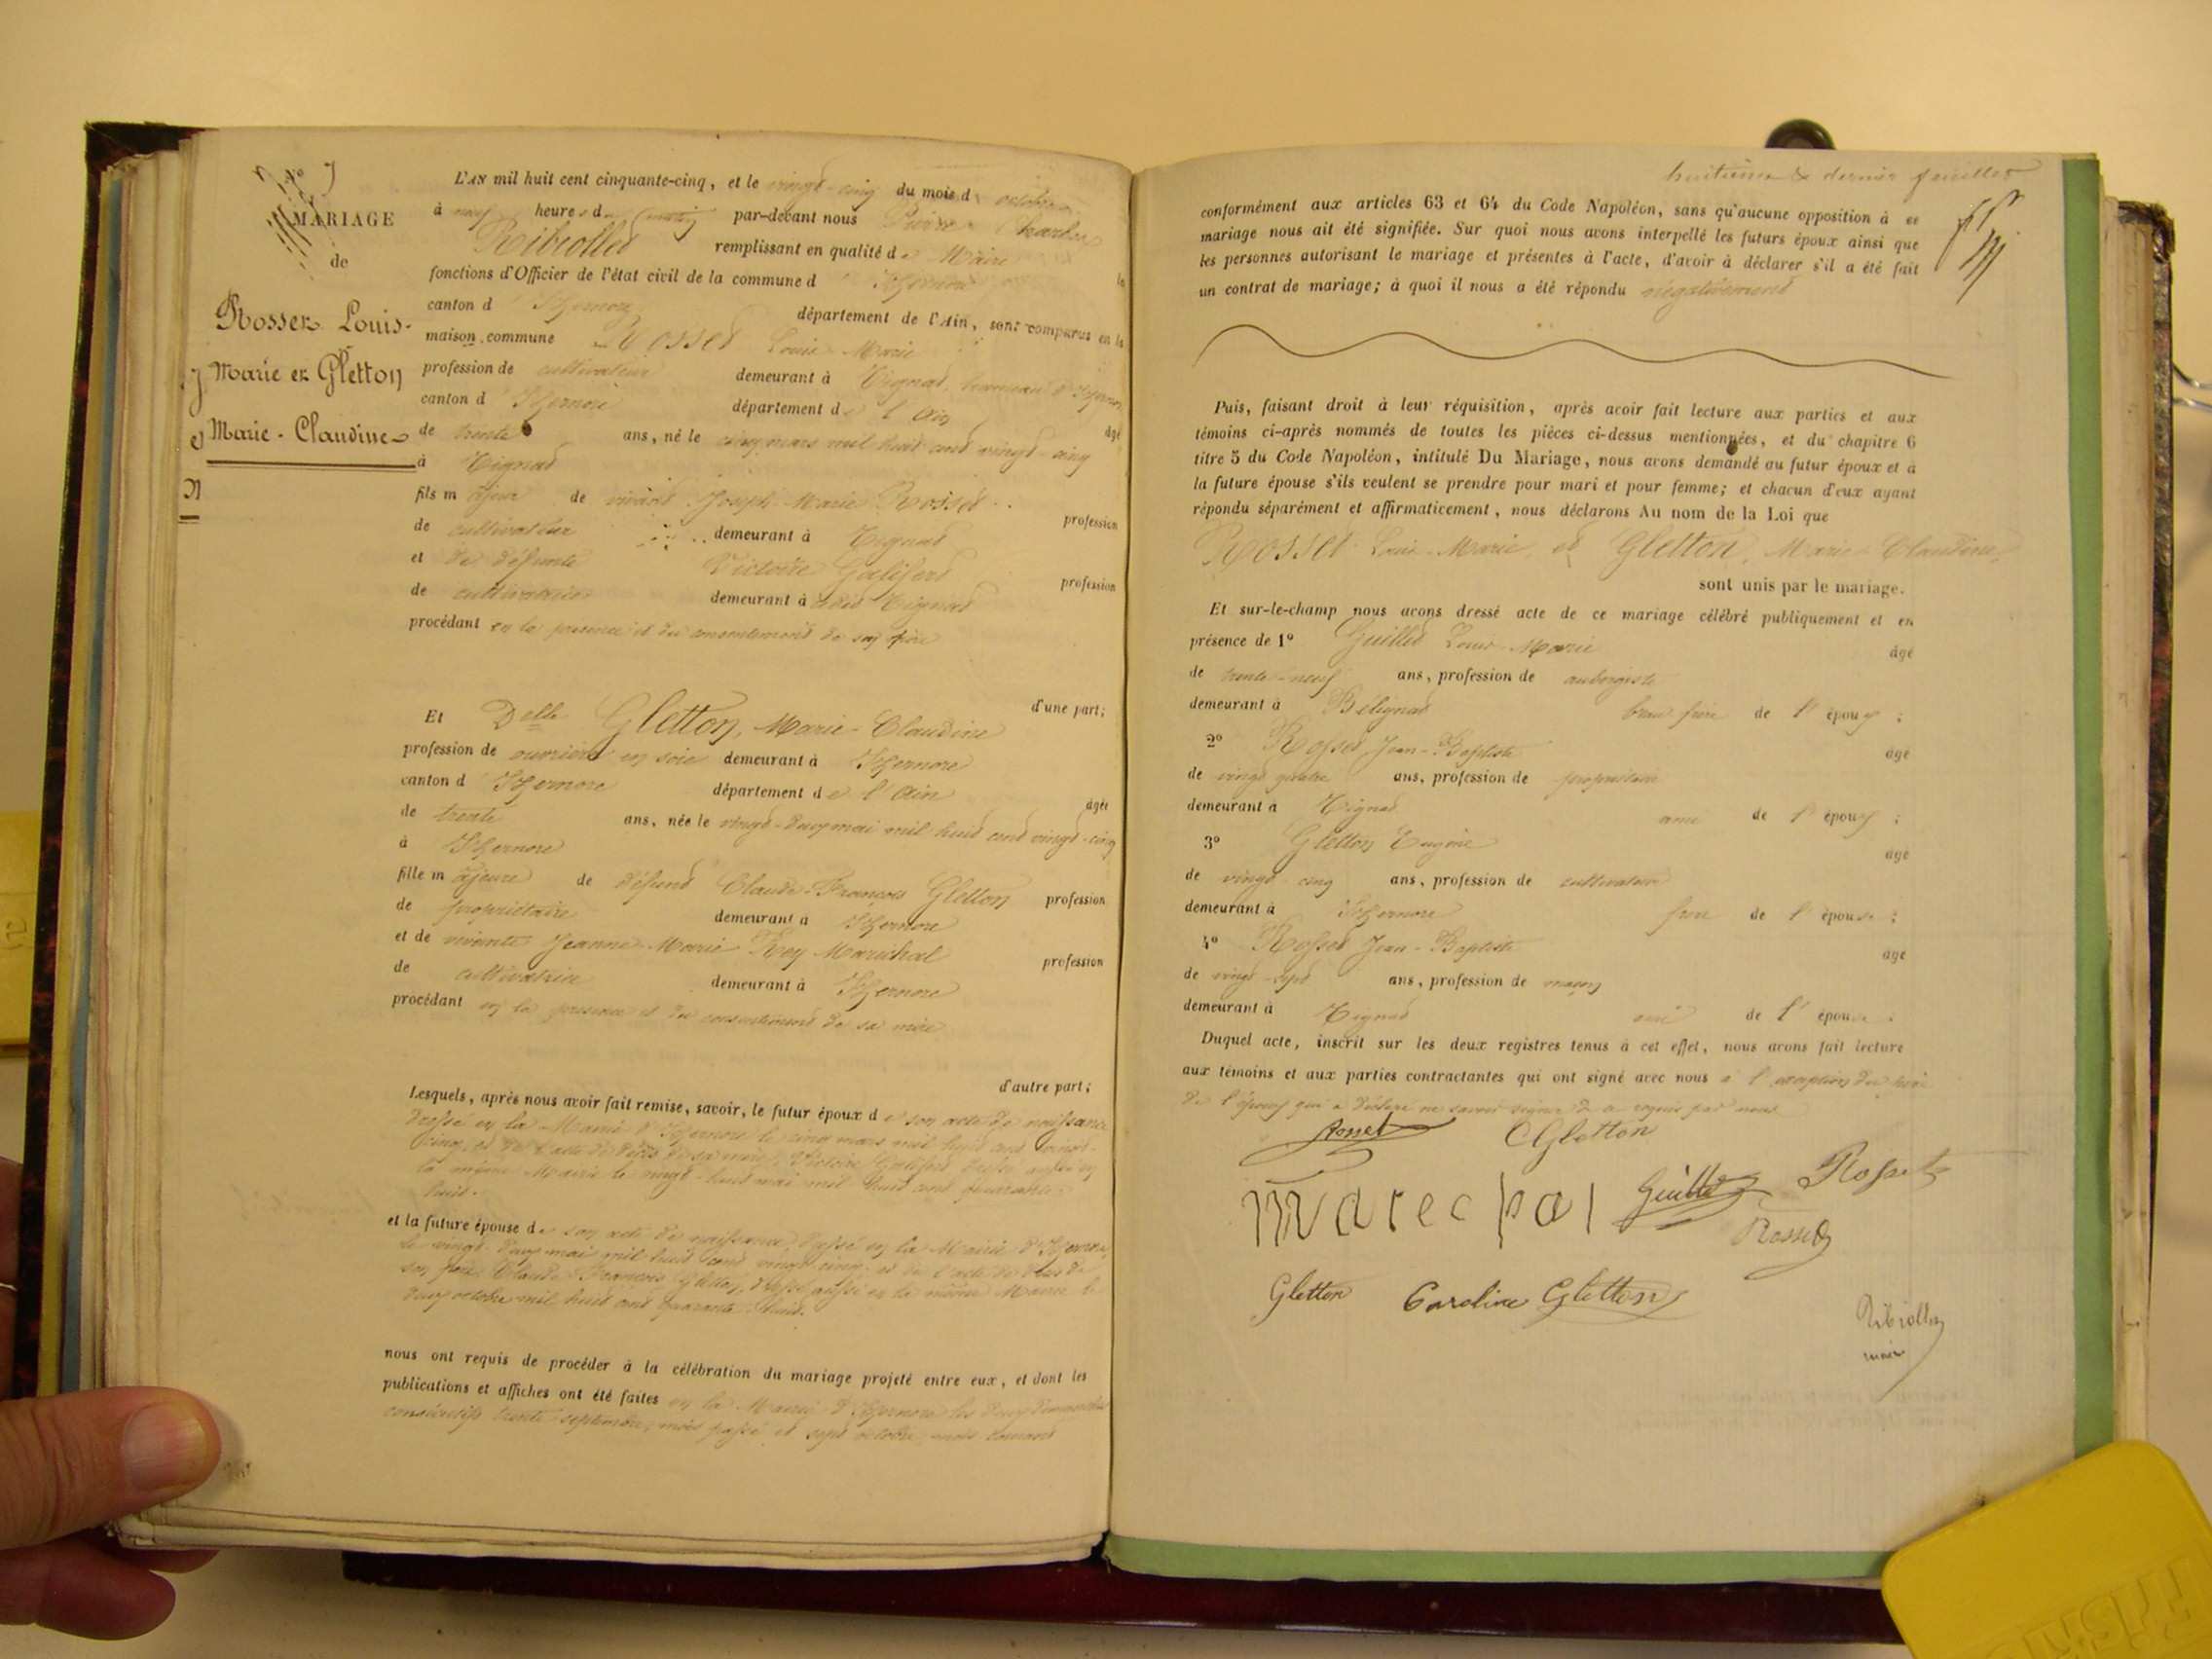 N° 7
MARIAGE
de
Rosset Louis-
Marie et Gletton
Marie-Claudine
L'AN mil huit cent cinquante-cinq, et le vingt-cinq du mois d octobre
à neuf heures du matin par-devant nous Pierre Charles
Ribiollet remplissant en qualité de Maire les
fonctions d'Officier de l'état civil de la commune d'Izernore
canton d'Izernore département de l'Ain, sont comparus en la
maison commune Rosset Louis-Marie
profession de cultivateur demeurant à Tignat, hameau d'Izernore
canton d'Izernore département de l'Ain âgé
de trente ans, né le cinq mars mil huit cent vingt-cinq
à Tignat
fils majeur de vivant Joseph-Marie Rosset profession
de cultivateur demeurant à Tignat
et de défunte Victoire profession
de cultivatrice demeurant à Tignat
procédant en la présence et du consentement de son père
d'une part;
Et Delle Gletton, Marie-Claudine
profession de ouvrière en soie demeurant à Izernore
canton d'Izernore département de l'Ain âgée
de trente ans, née le vingt-deux mai mil huit cent vingt-cinq
à Izernore
fille majeure de défunt Claude-François Gletton profession
de propriétaire demeurant à Izernore
et de vivante Jeanne-Marie Rey Maréchal profession
de cultivatrice demeurant à Izernore
procédant en la présence et du consentement de sa mère
d'autre part;
Lesquels, après nous avoir fait remise, savoir, le futur époux de son acte de naissance
dressé en la Mairie d'Izernore le cinq mars mil huit cent vingt-
cinq, et de l'acte de décès de sa mère, Victoire dressé aussi en
la même Mairie le vingt-huit mai mil huit cent quarante-
huit.
et la future épouse de son acte de naissance, dressé en la Mairie d'Izernore
le vingt-deux mai mil huit cent vingt-cinq et de l'acte de décès de
son père Claude-François Gletton, dressé aussi en la même Mairie le
deux octobre mil huit cent quarante-huit.
nous ont requis de procéder à la célébration du mariage projeté entre eux, et dont les
publications et affiches ont été faites en la Mairie d'Izernore les deux dimanches
consécutifs trente septembre, mois passé et sept octobre, mois courant
huitième & dernier feuillet
conformément aux articles 63 et 64 du Code Napoléon, sans qu'aucune opposition à ce
mariage nous ait été signifiée. Sur quoi nous avons interpellé les futurs époux ainsi que
les personnes autorisant le mariage et présentes à l'acte, d'avoir à déclarer s'il a été fait
un contrat de mariage; à quoi il nous a été répondu négativement
Puis, faisant droit à leur réquisition, après avoir fait lecture aux parties et aux
témoins ci-après nommés de toutes les pièces ci-dessus mentionnées, et du chapitre 6
titre 5 du Code Napoléon, intitulé Du Mariage, nous avons demandé au futur époux et à
la future épouse s'ils veulent se prendre pour mari et pour femme; et chacun d'eux ayant
répondu séparément et affirmativement, nous déclarons Au nom de la Loi que
Rosset Louis-Marie, et Gletton, Marie-Claudine,
sont unis par le mariage.
Et sur-le-champ nous avons dressé acte de ce mariage célébré publiquement et en
présence de 1° Guillet Louis-Marie âgé
de trente-neuf ans, profession de aubergiste
demeurant à Bélignat beau-frère de l'époux;
2° Rosset, Jean-Baptiste âgé
de vingt quatre ans, profession de propriétaire
demeurant à Tignat ami de l'époux;
3° Gletton Eugène âgé
de vingt-cinq ans, profession de cultivateur
demeurant à Izernore frère de l'épouse;
4° Rosset Jean-Baptiste âgé
de vingt-sept ans, profession de maçon
demeurant à Tignat ami de l'épouse.
Duquel acte, inscrit sur les deux registres tenus à cet effet, nous avons fait lecture
aux témoins et aux parties contractantes qui ont signé avec nous à l'exception du père
de l'époux qui a déclaré ne savoir signer de ce requis par nous
Rosset CGletton
marechal Guillet Rosset
Rosset
Gletton Caroline Gletton
Ribiollet
maire